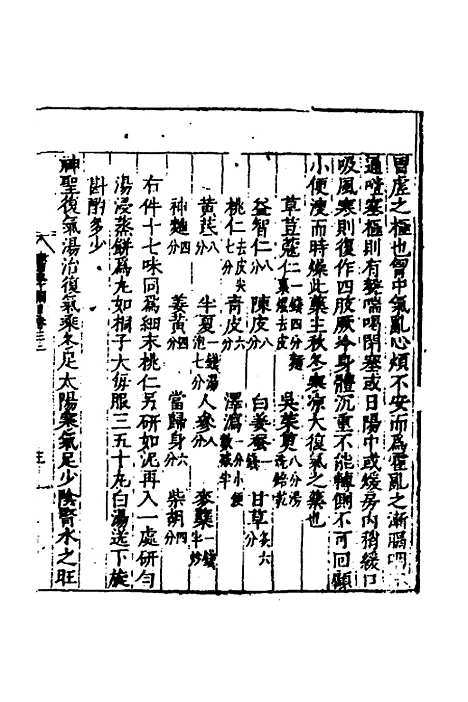 胃虛之極也胷中氣亂心煩不安而為霍亂之漸膈咽
通噎塞極則有聲喘喝閉塞或日陽中或煖房內稍緩口
吸風寒則復作四肢厥冷身體沉重不能轉側不可回顧
小便溲而時燥此藥主秋冬寒凉大復氣之藥也
草荳蔲仁一錢四分麵裹煨去皮 吳茱萸八分湯洗焙乾
益智仁八分 陳皮八分 白姜蚕一錢 甘草炙六分
桃仁去皮尖七分 青皮六分 澤瀉一分小便數減半
黃芪八分 半夏一錢湯泡七分 人參八分 麥蘗一錢半炒
神麯四分 姜黃四分 當歸身六分 柴胡四分
右件十七味同為細末桃仁另研如泥再入一處研勻
湯浸蒸餅為丸如桐子大每服三五十丸白湯送下旋
斟酌多少
神聖復氣湯治復氣乘冬足太陽寒氣足少陰腎水之旺